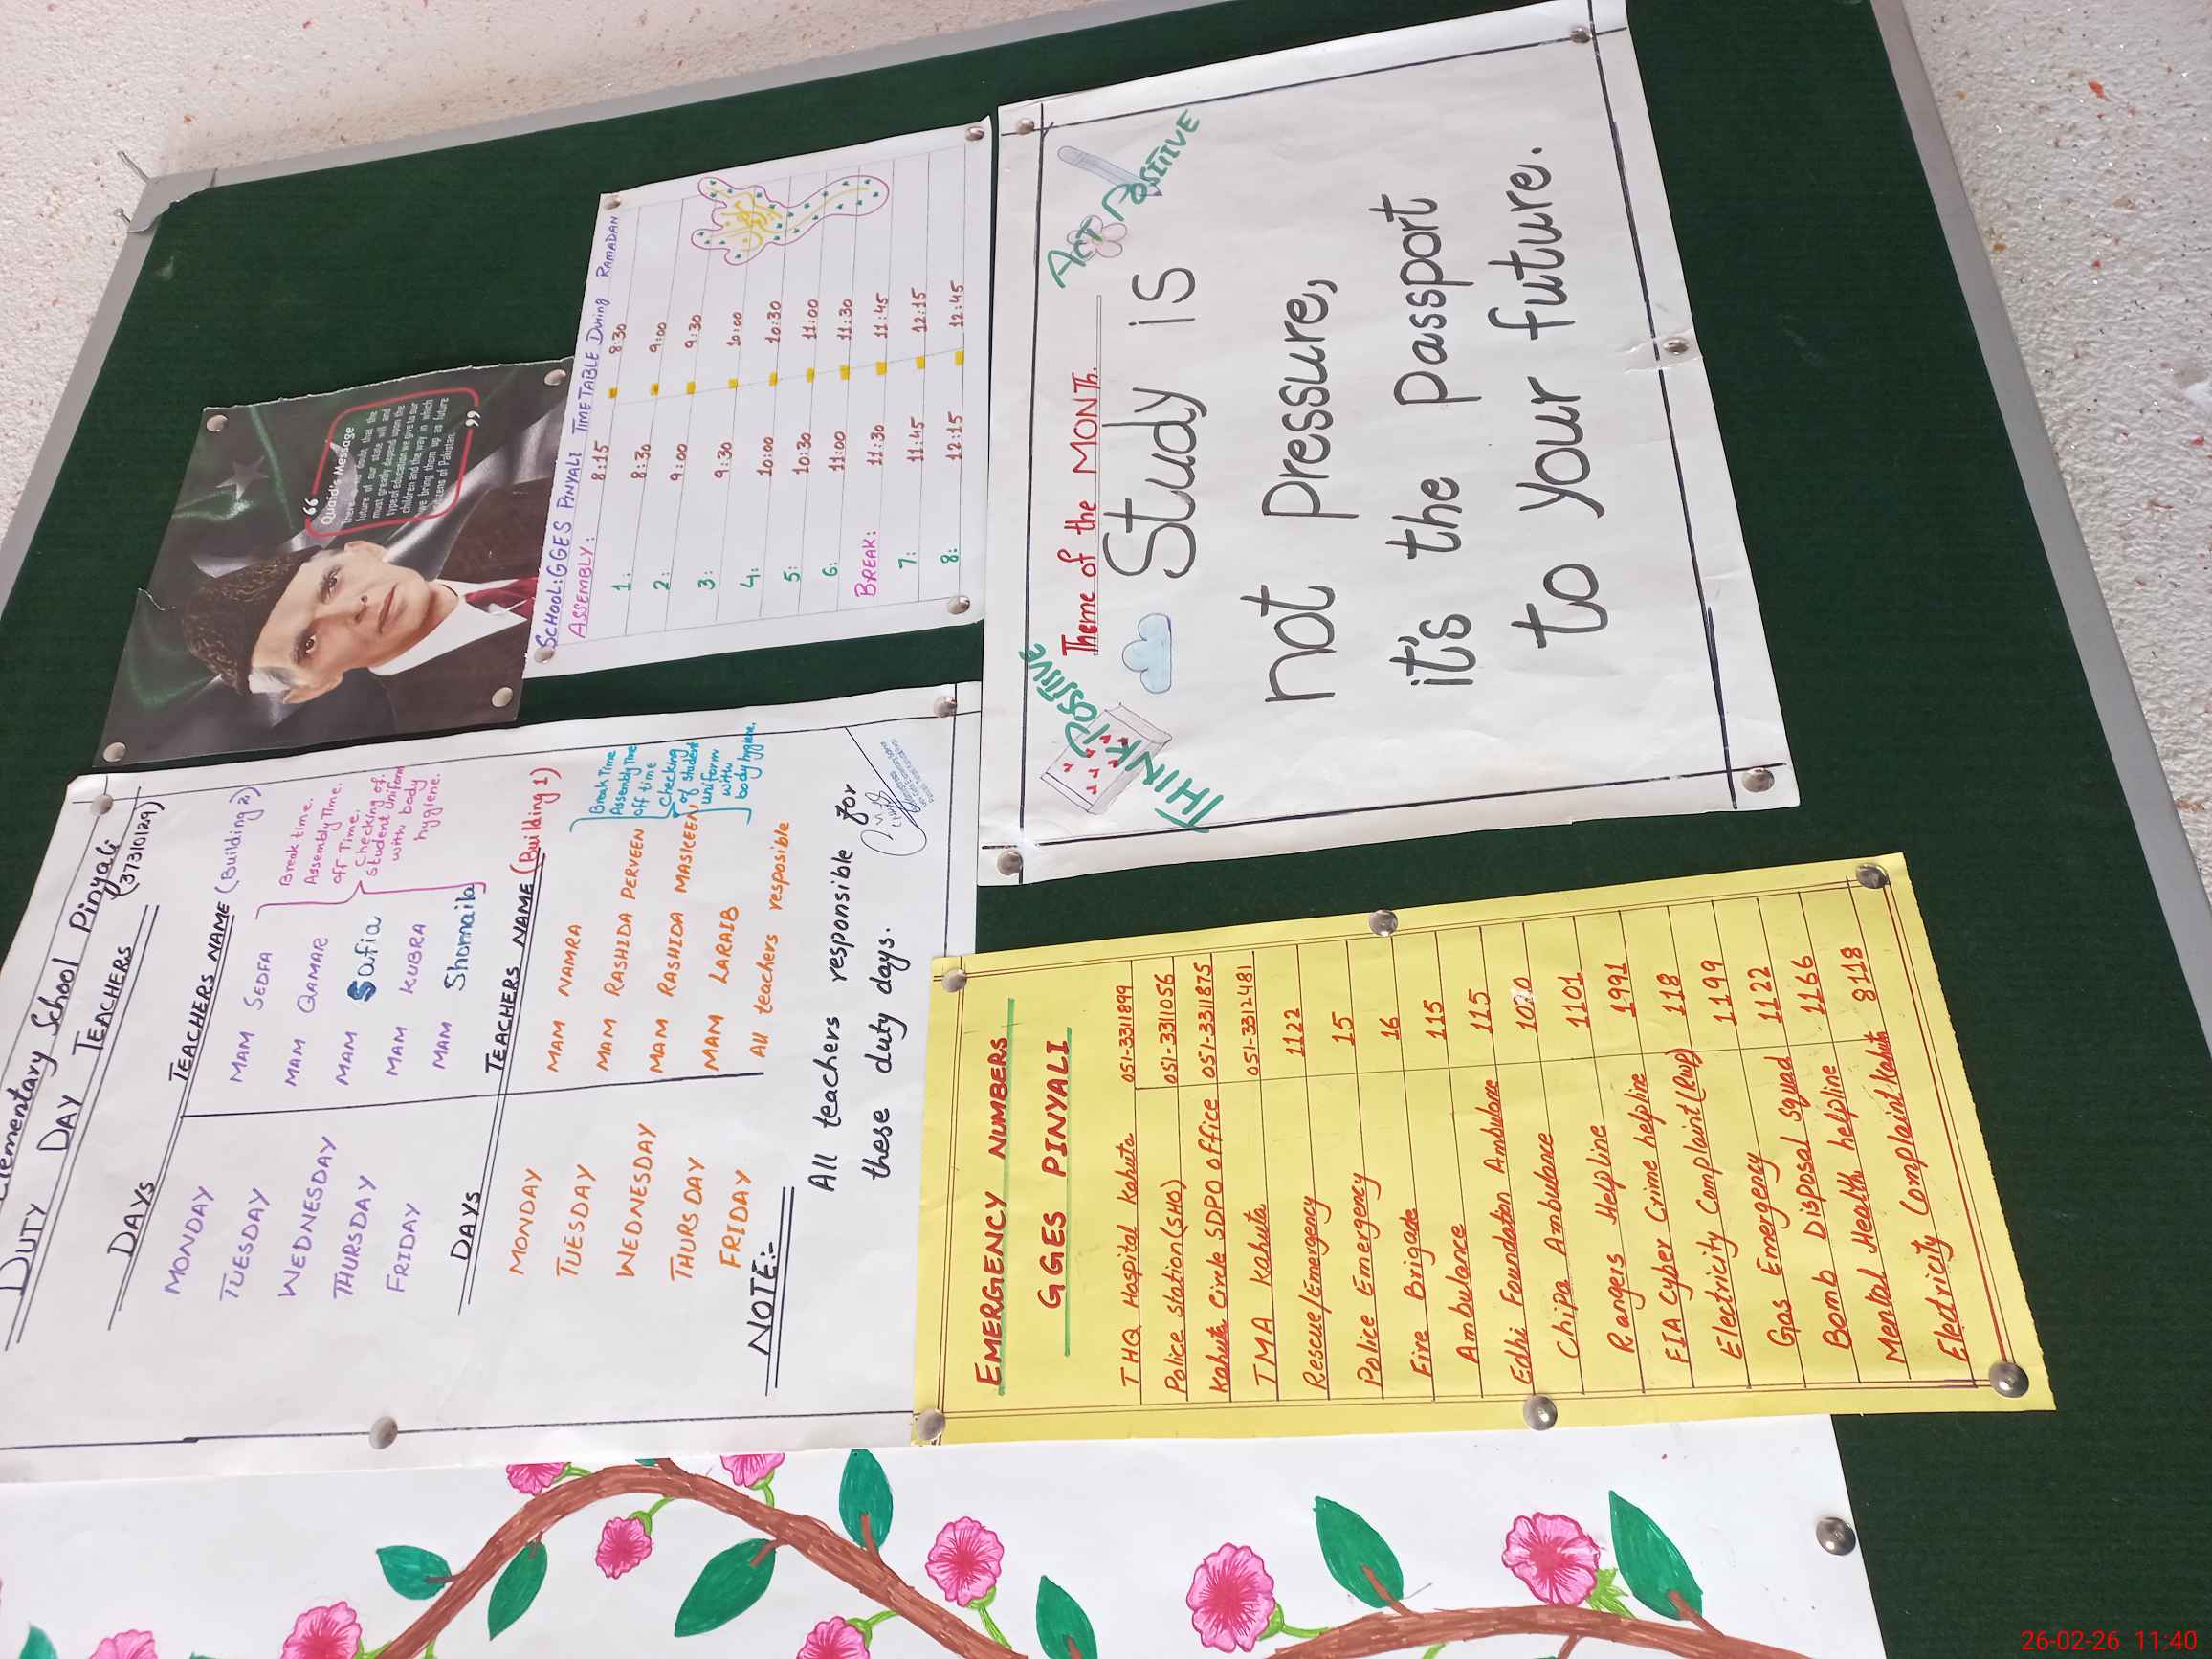 Elementary School Pinyali
(37310129)
DUTY DAY TEACHERS
DAYS TEACHERS NAME (Building 2)
MONDAY MAM SEDFA
TUESDAY MAM QAMAR
WEDNESDAY MAM Safia
THURSDAY MAM KUBRA
FRIDAY MAM Shomaila
Break time.
Assembly Time.
off Time.
Checking of
Student Uniform
with body
hygiene.
DAYS TEACHERS NAME (Building 1)
MONDAY MAM NAMARA
TUESDAY MAM RASHIDA PERVEEN
WEDNESDAY MAM RASHIDA MASKEEN
THURSDAY MAM LARAIB
FRIDAY All teachers resposible
Break Time
Assembly Time
off time
Checking
of student
uniform
with
body hygiene.
NOTE:-
All teachers responsible for
these duty days.
“
Quaid's Message
There is no doubt that the
future of our state will and
must greatly depend upon the
type of education we give to our
children and the way in which
we bring them up as future
citizens of Pakistan.
”
SCHOOL: GGES PINYALI TIME TABLE During RAMADAN
ASSEMBLY: 8:15 8:30
1: 8:30 9:00
2: 9:00 9:30
3: 9:30 10:00
4: 10:00 10:30
5: 10:30 11:00
6: 11:00 11:30
BREAK: 11:30 11:45
7: 11:45 12:15
8: 12:15 12:45
THINK POSITIVE
Theme of the MONTh.
ACT POSITIVE
Study is
not pressure,
it's the passport
to your future.
EMERGENCY NUMBERS
GGES PINYALI
THQ Hospital Kahuta 051-3311899
Police Station (SHO) 051-3311056
Kahuta Circle SDPO office 051-3311875
TMA Kahuta 051-3312481
Rescue/Emergency 1122
Police Emergency 15
Fire Brigade 16
Ambulance 115
Edhi Foundation Ambulance 115
Chipa Ambulance 1020
Rangers Helpline 1101
FIA Cyber Crime helpline 1991
Electricity Complaint (Rwp) 118
Gas Emergency 1199
Bomb Disposal Squad 1122
Mental Health helpline 1166
Electricity Complaint Kahuta 8118
26-02-26 11:40